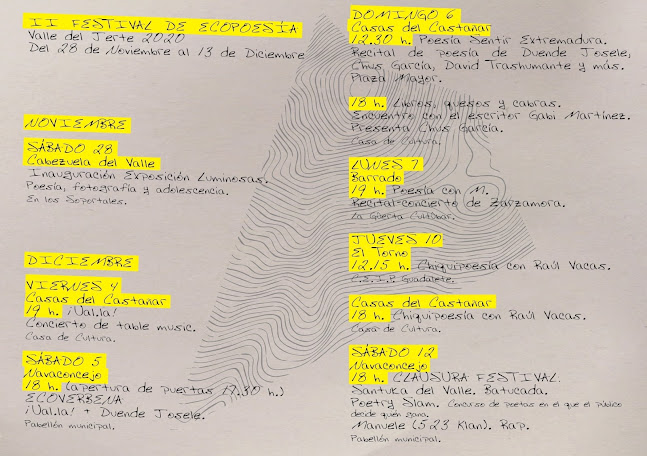 II FESTIVAL DE ECOPOESÍA
Valle del Jerte 2020
Del 28 de Noviembre al 13 de Diciembre
NOVIEMBRE
SÁBADO 28
Cabezuela del Valle
Inauguración Exposición Luminosas.
Poesía, fotografía y adolescencia.
En los Soportales.
DICIEMBRE
VIERNES 4
Casas del Castañar
19 h. ¡Val.la!
Concierto de table music.
Casa de Cultura.
SÁBADO 5
Navaconcejo
18 h. (apertura de puertas 17.30 h.)
ECOVERBENA
¡Val.la! + Duende Josele.
Pabellón municipal.
DOMINGO 6
Casas del Castañar
12.30 h. Poesía Sentir Extremadura.
Recital de poesía de Duende Josele,
Chus García, David Trashumante y más.
Plaza Mayor.
18 h. Libros, quesos y cabras.
Encuentro con el escritor Gabi Martínez.
Presenta Chus García.
Casa de Cultura.
LUNES 7
Barrado
19 h. Poesía con M.
Recital-concierto de Zarzamora.
La Güerta Cultúbar.
JUEVES 10
El Torno
12.15 h. Chiquipoesía con Raúl Vacas.
C.E.I.P. Guadalete.
Casas del Castañar
18 h. Chiquipoesía con Raúl Vacas.
Casa de Cultura.
SÁBADO 12
Navaconcejo
18 h. CLAUSURA FESTIVAL.
Santuka del Valle. Batucada.
Poetry Slam. Concurso de poetas en el que el público
decide quién gana.
Manuele (523 Klan). Rap.
Pabellón municipal.